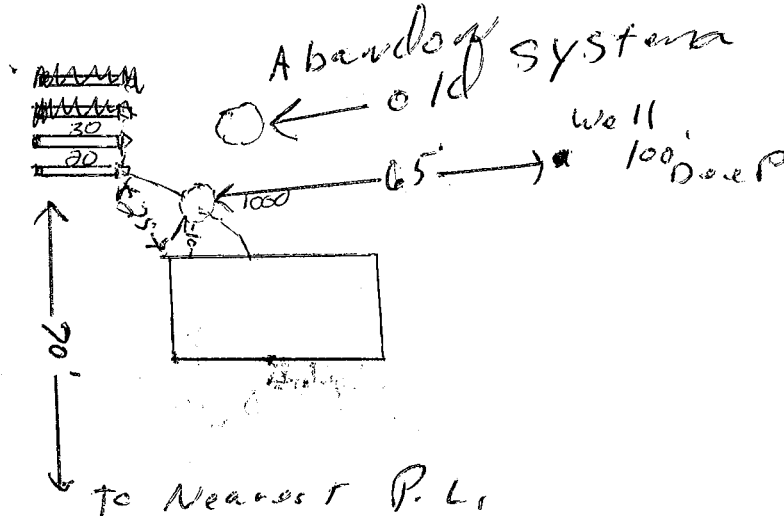 Abandon system
old
Well
100' Deep
30
20
65'
1000
25'
10
70'
to Nearest P.L.